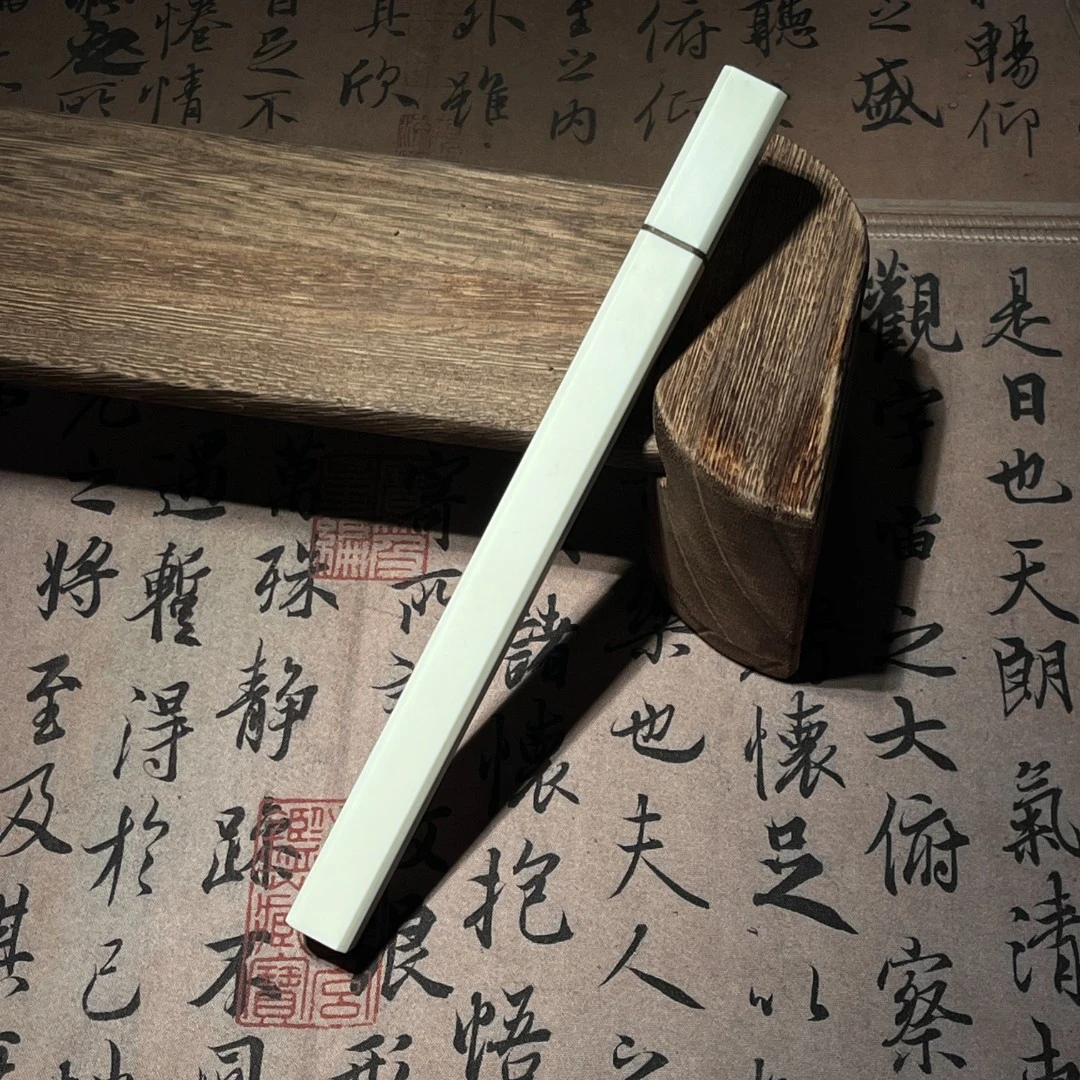 暢仰
之盛
聽
俯仰
之内
外雖
其欣
足不
惓情
所
是日也天朗氣清
觀宇宙之大俯察
懷足以
也夫人之
諸懷抱悟
寄所
浪形
萬殊静躁不同
遇暫得於己
之將至及其